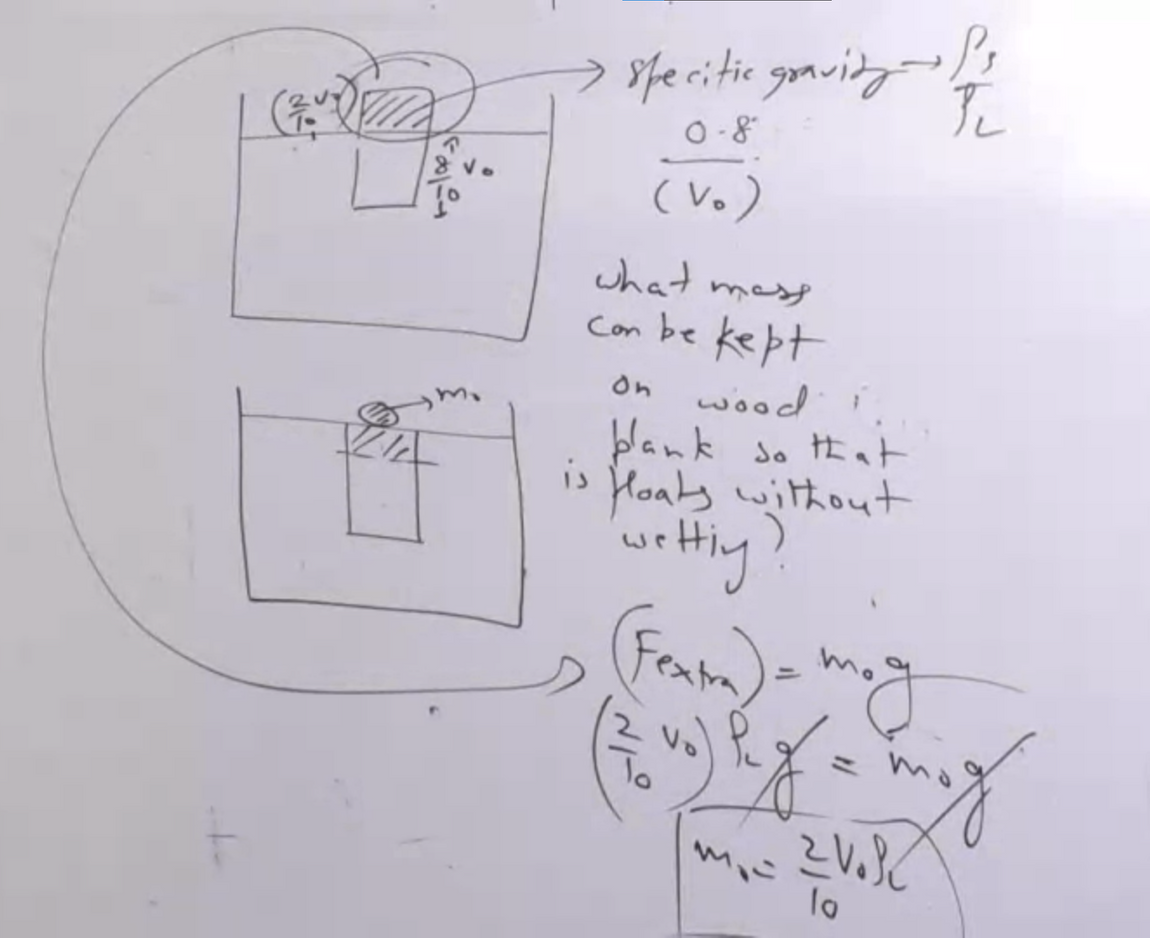 specific gravity → ρs/ρL
(2/10 V₀)
0.8
(V₀)
8/10 V₀
what mass
can be kept
on wood
plank so that
is floats without
wettiy?
m₀
(Fextra) = m₀g
(2/10 V₀) ρL g = m₀g
m₀ = 2/10 V₀ρL